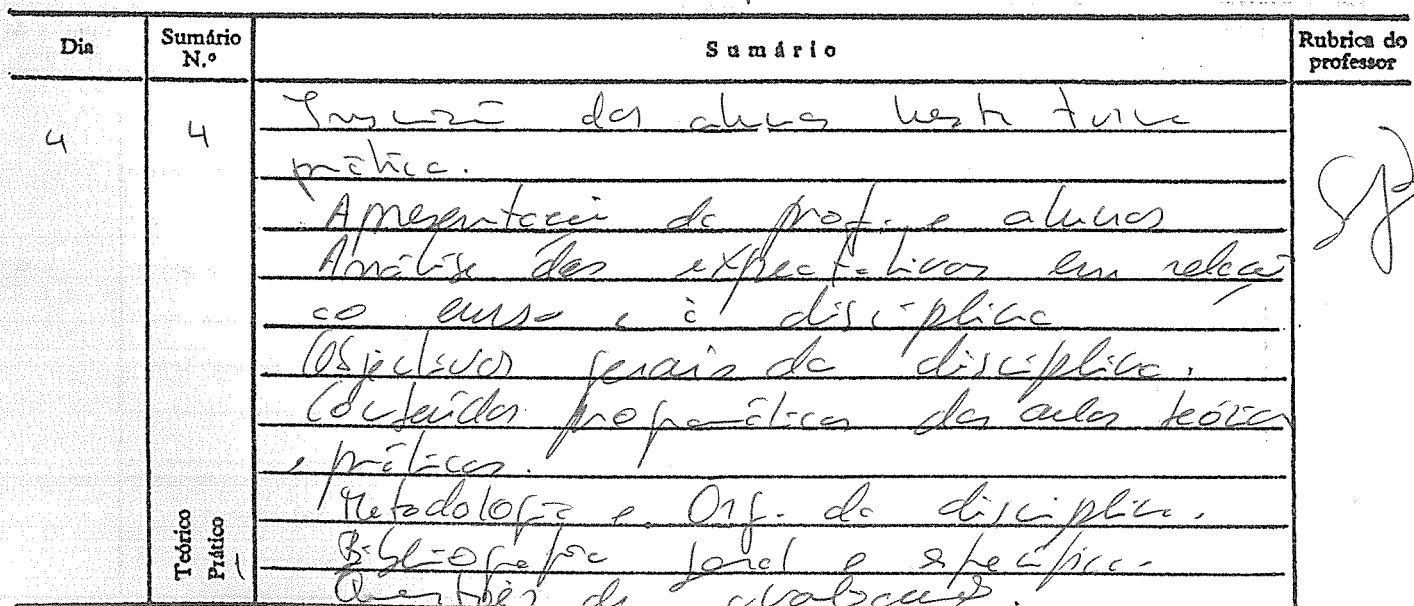 Dia
Sumário N.º
Sumário
Rubrica do professor
4
4
Inscrição dos alunos nesta turma
prática.
Apresentação do prof. e alunos
Análise das expectativas em relação
ao curso e à disciplina
Objectivos gerais da disciplina.
Conteúdos programáticos das aulas teóricas
e práticas.
Metodologia e Org. da disciplina.
Bibliografia geral e específica.
Questões de avaliação.
Teórico
Prático